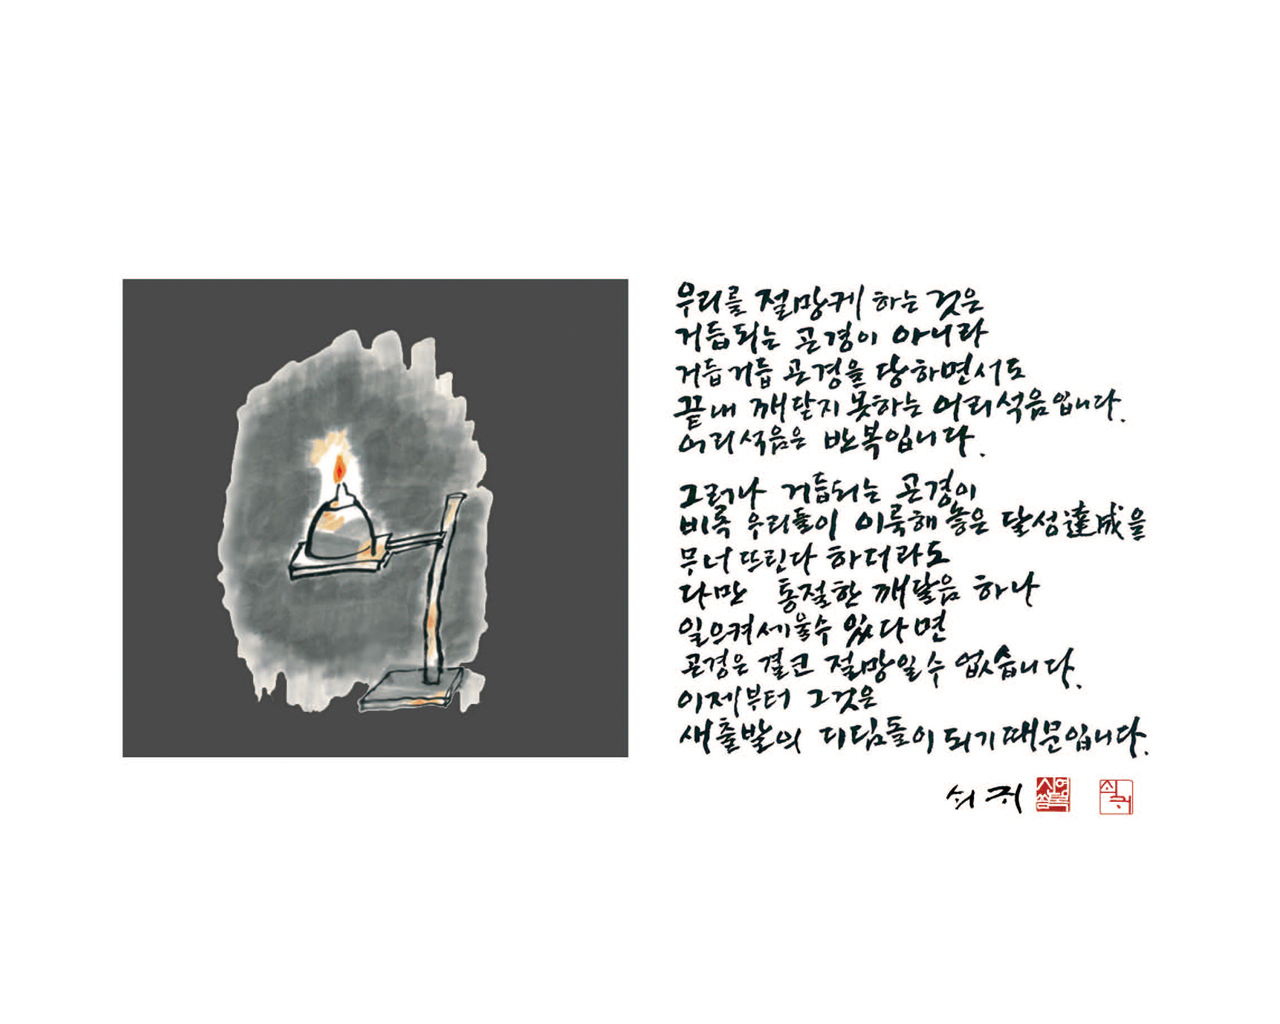 우리를 절망케 하는 것은
거듭되는 곤경이 아니라
거듭거듭 곤경을 당하면서도
끝내 깨닫지 못하는 어리석음입니다.
어리석음은 반복입니다.
그러나 거듭되는 곤경이
비록 우리들이 이룩해 놓은 달성達成을
무너뜨린다 하더라도
다만 통절한 깨달음 하나
일으켜세울수 있다면
곤경은 결코 절망일수 없습니다.
이제부터 그것은
새출발의 디딤돌이 되기 때문입니다.
쇠귀